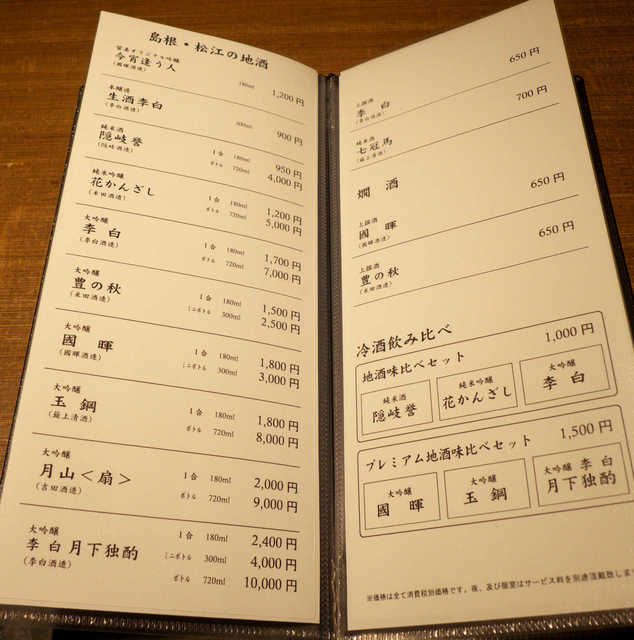 島根・松江の地酒
今宵逢う人
(國暉酒造)
180ml 1,200 円
本醸造
生酒李白
(李白酒造)
300ml 900 円
純米酒
隠岐誉
(隠岐酒造)
1合 180ml 950 円
ボトル 720ml 4,000 円
純米吟醸
花かんざし
(米田酒造)
1合 180ml 1,200 円
ボトル 720ml 5,000 円
大吟醸
李 白
(李白酒造)
1合 180ml 1,700 円
ボトル 720ml 7,000 円
大吟醸
豊の秋
(米田酒造)
1合 180ml 1,500 円
ミニボトル 300ml 2,500 円
大吟醸
國 暉
(國暉酒造)
1合 180ml 1,800 円
ミニボトル 300ml 3,000 円
大吟醸
玉 鋼
(簸上清酒)
1合 180ml 1,800 円
ボトル 720ml 8,000 円
大吟醸
月山＜扇＞
(吉田酒造)
1合 180ml 2,000 円
ボトル 720ml 9,000 円
大吟醸
李白 月下独酌
(李白酒造)
1合 180ml 2,400 円
ミニボトル 300ml 4,000 円
ボトル 720ml 10,000 円
上撰酒
李 白
(李白酒造)
650 円
純米酒
七冠馬
(簸上清酒)
700 円
燗 酒
上撰酒
國 暉
(國暉酒造)
650 円
上撰酒
豊の秋
(米田酒造)
650 円
冷酒飲み比べ
地酒味比べセット 1,000 円
純米酒
隠岐誉
純米吟醸
花かんざし
大吟醸
李 白
プレミアム地酒味比べセット 1,500 円
大吟醸
國 暉
大吟醸
玉 鋼
大吟醸 李白
月下独酌
※価格は全て消費税別価格です。夜、及び個室はサービス料を別途頂戴致しま